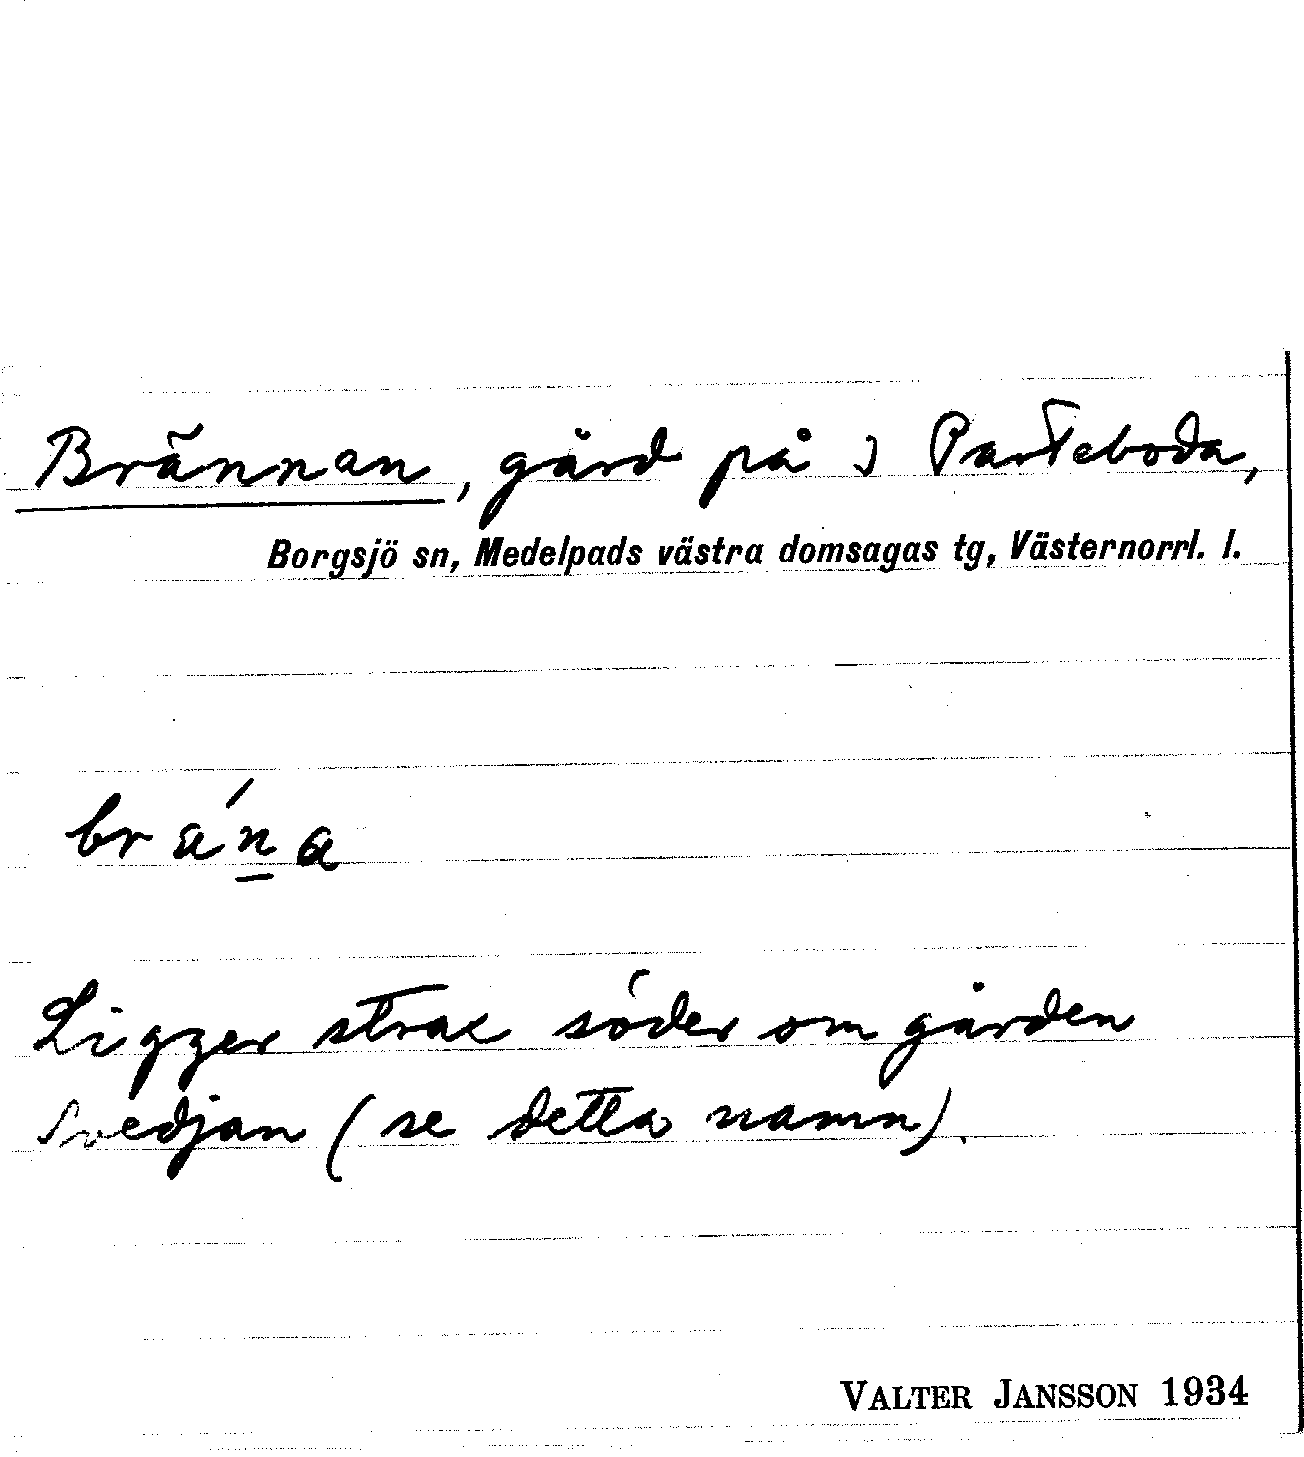 Brännan, gård på Parteboda,
Borgsjö sn, Medelpads västra domsagas tg, Västernorrl. l.
Ligger strax söder om gården
Svedjan (se detta namn).
VALTER JANSSON 1934